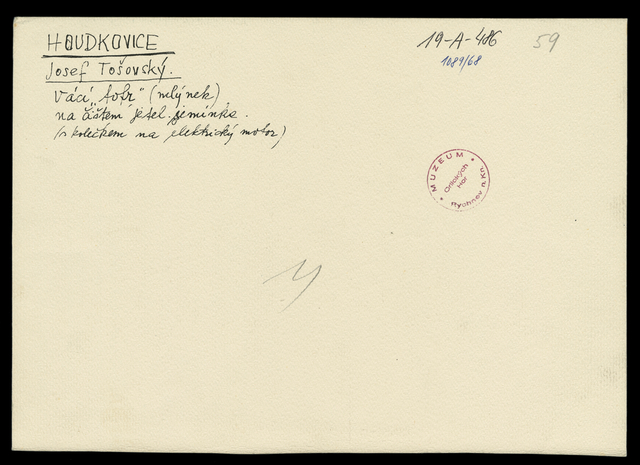 HOUDKOVICE
19-A-486
59
1089/68
Josef Tošovský.
Vácí „fofr" (mlýnek)
na čištění jetel. semínka.
(s kolečkem na elektrický motor)
MUZEUM
Orlických
Hor
Rychnov n.Kn.